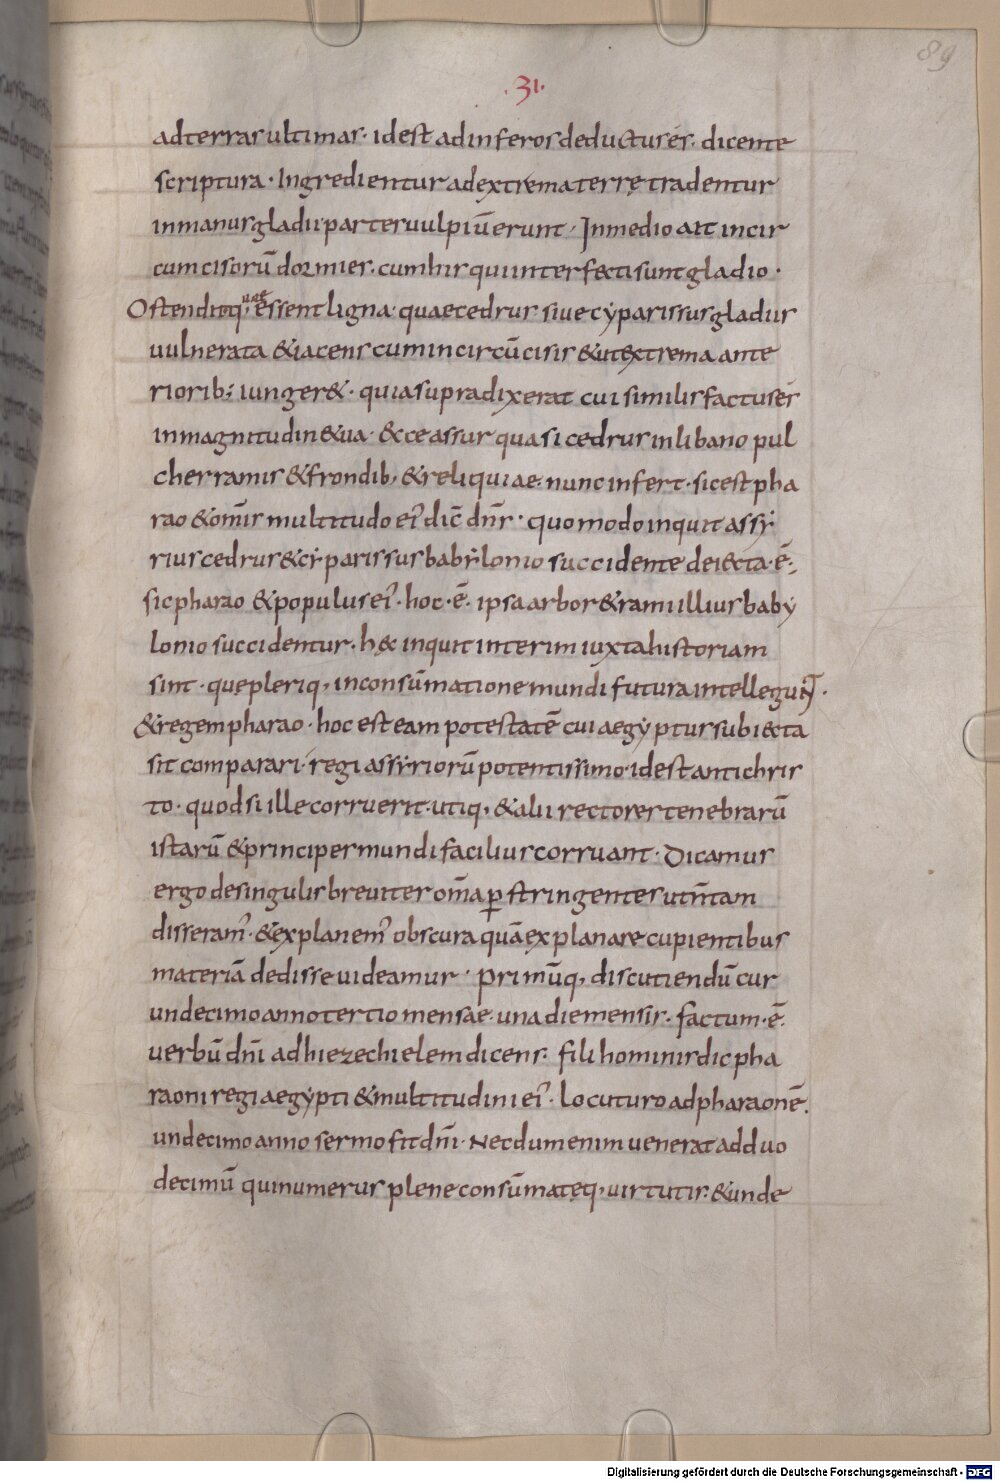 89
.31.
ad terras ultimas · id est ad inferos deductus és · dicente
scriptura · Ingredientur ad extrema terrę tradentur
in manus gladii partes uulpiū erunt · In medio ait incir
cumcisorū dormies · cum his qui interfecti sunt gladio ·
Ostenditq; uaessent ligna · quae cedrus siue cẏparissus gladiis
uulnerata & iacens cum incircūcisis & ut extrema ante
riorib; iunger& · quia supra dixerat cui similis factus és
in magnitudine tua · & ecce assur quasi cedrus in libano pul
cher ramis & frondib; & reliquiae · nunc infert · sic est pha
rao & om̄is multitudo ei᾿ dic̄ dn̄s · quomodo inquit assẏ
rius cedrus & cẏparissus babẏlonio succidente deiecta · ē ·
sic pharao & populus ei᾿ · hoc · ē · ipsa arbor & rami illius babẏ
lonio succidentur · hęc inquit interim iuxta historiam
sint · quę pleriq; in consūmatione mundi futura intellegunt ·
& regem pharao · hoc est eam potestatē cui aegẏptus subiecta
sit comparari · regi assẏriorū potentissimo · id est antichris
to · quod si ille corruerit · utiq; & alii rectores tenebrarū
istarū & principes mundi facilius corruant · Dicamus
ergo de singulis breuiter om̄a ꝑstringentes ut n̄ tam
disseram᾿ · & explanem᾿ obscura quā explanare cupientibus
materiā dedisse uideamur · primūq; discutiendū cur
undecimo anno tertio mense · una die mensis · factum · ē ·
uerbū dn̄i ad hiezechielem dicens · fili hominis dic pha
raoni regi aegẏpti & multitudini ei᾿ · locuturo ad pharaonē ·
undecimo anno sermo fit dn̄i · Necdum enim uenerat ad duo
decimū qui numerus plene consūmatęq; uirtutis · & unde
Digitalisierung gefördert durch die Deutsche Forschungsgemeinschaft - DFG